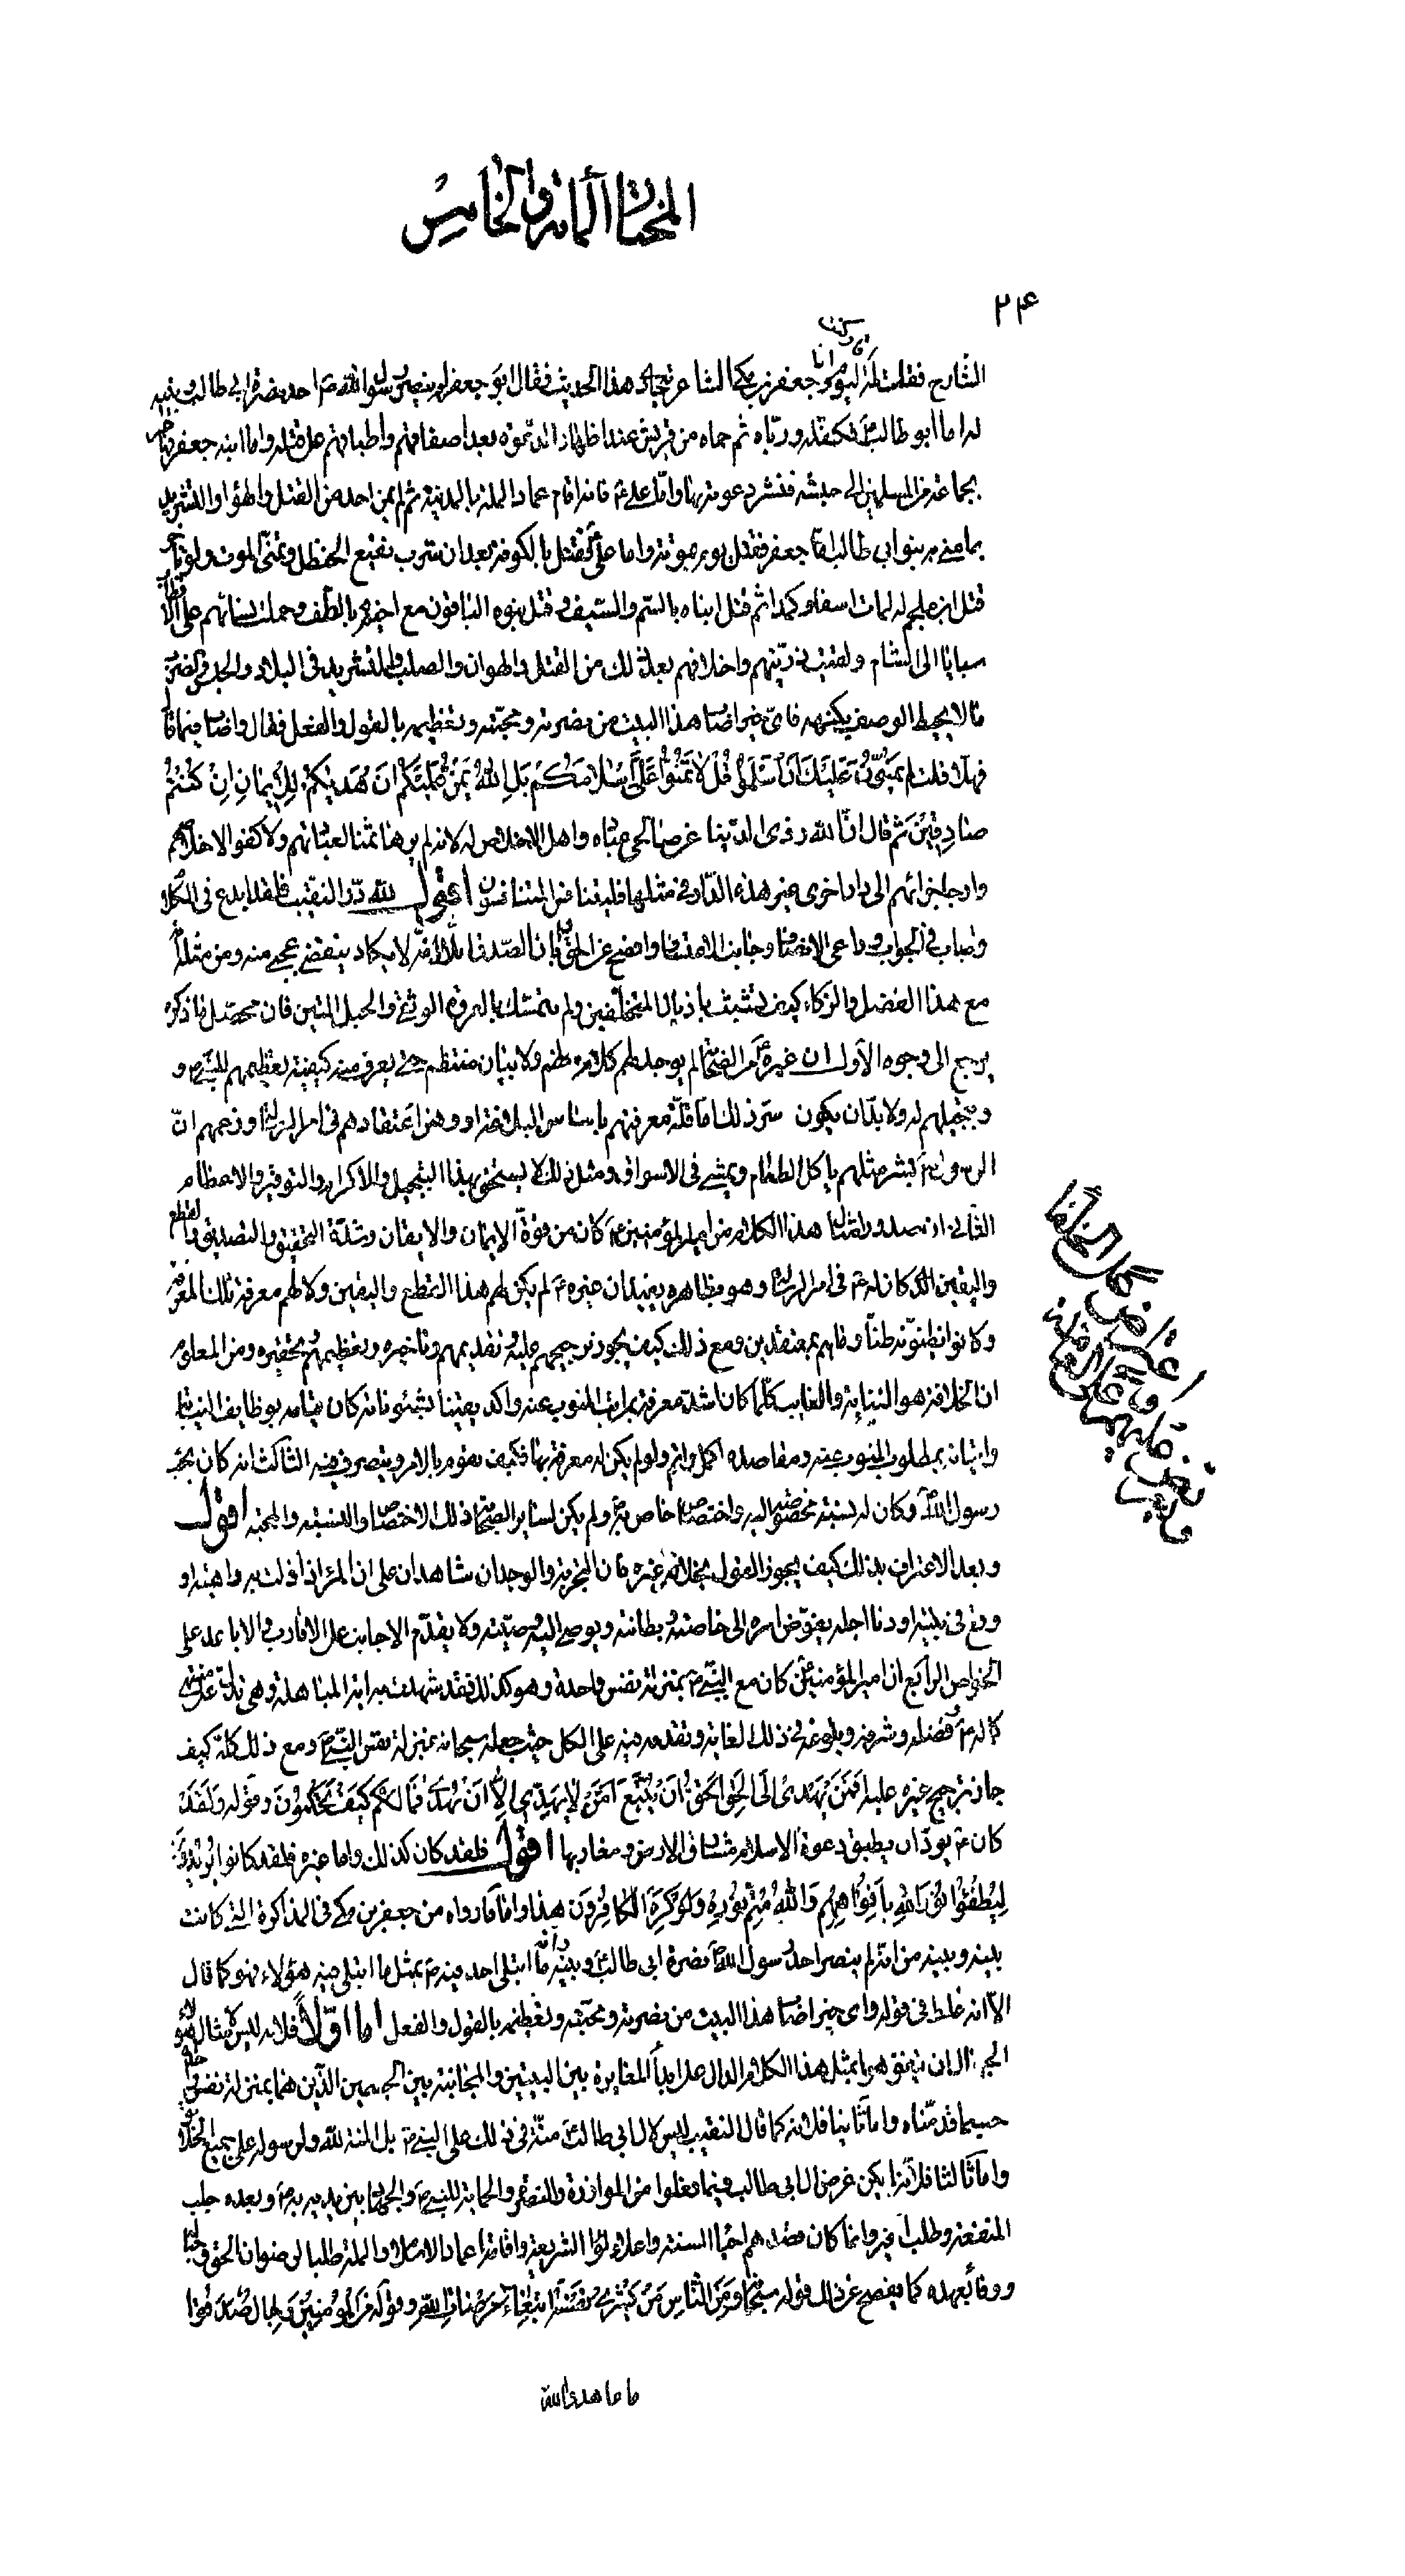 المختار المأة والخامس
٢۴
الشارح فقلت له اليوم و كنت انا و جعفر بن مكى الشاعر نتجاذب هذا الحديث فقال ابو جعفر لم ينصر رسول الله ص احد نصرة ابى طالب و بنيه
له اما أبو طالب فكفّله و ربّاه ثم حماه من قريش عند اظهار الدعوة بعد اصفاقهم و اطباقهم على قتله و اما ابنه جعفر فهاجر
بجماعة من المسلمين الى حبشه فنشر دعوته بها و امّا علىّ ع فانه اقام عماد الملة بالمدينة ثم لم يمن احد من القتل و الهوان و التشريد
بما منى به بنو ابى طالب امّا جعفر فقتل يوم موتة و اما علىّ فقتل بالكوفة بعد ان شرب نقيع الحنظل و تمنّى الموت و لو تأخر
قتل ابن ملجم له لمات اسفا و كمدا ثم قتل ابناه بالسّم و السّيف و قتل بنوه الباقون مع اخيهم بالطّف و حملت نسائهم على الاقتاب
سبايا الى الشام و لقيت ذرّيّتهم و اخلافهم بعد ذلك من القتل و الهوان و الصلب و التشريد فى البلاد و الحبس و الضرب
ما لا يحيط الوصف بكنهه فاىّ خير اصاب هذا البيت من نصرته و محبّته و تعظيمه بالقول و الفعل فقال و اصاب فيما قال
فهلّا قلت يَمُنُّونَ عَلَيْكَ أَنْ أَسْلَمُوا قُلْ لا تَمُنُّوا عَلَىَّ إِسْلامَكُمْ بَلِ اللهُ يَمُنُّ عَلَيْكُمْ أَنْ هَديكُمْ لِلْإِيمانِ إِنْ كُنْتُمْ
صادِقِينَ ثم قال انّ لله زوى الدّنيا عن صالحى عباده و اهل الاخلاص له لانه لم يرضها ثمنا لعباداتهم و لا كفوا لاخلاصهم
و ارجأ جزائهم الى دار اخرى غير هذه الدّار فى مثلها فليتنافس المتنافسون اقول لله درّ النقيب فلقد ابدع فى الكلام
و اصاب فى الجواب و راعى الانصاف و جانب الاعتساف و افصح عن الحق و ابان الصّدق بلا لّا لا يكاد ينقضى عجبى منه و من مثله
مع هذا الفضل و الزكاء كيف تشبّث باذيال المتخلّفين و لم يتمسّك بالعروة الوثقى و الحبل المتين فان محصّل ما ذكره
يرجع الى وجوه الاول ان غيره من الصّحابة لم يوجد لهم كلام منظم و لا بيان منتظم حتى يعرف منه كيفية تعظيمهم للنبىّ ص و
و تبجيلهم له و لا بدّ ان يكون سرّ ذلك امّا قلّة معرفتهم باساس البلاغة او وهن اعتقادهم فى امر الرسالة و زعمهم انّ
الرسول ص بشر مثلهم يأكل الطعام و يمشى فى الاسواق و مثل ذلك لا يستحق بهذا التبجيل و الاكرام و التوقير و الاعظام
الثانى ان صدور امثال هذا الكلام من امير المؤمنين ع كان من قوّة الايمان و الايقان و شدّة التحقيق و التصديق و القطع
و اليقين الّذى كان له ع فى امر الرسالة و هو بظاهره يفيد ان غيره ع لم يكن لهم هذا القطع و اليقين و لا لهم معرفة تلك المعرفة
و كانوا يظنّونه ظنّاً و ما هم بمعتقدين و مع ذلك كيف يجوز ترجيحهم عليه و تقديمهم و تأخيره و تعظيمهم و تحقيره و من المعلوم
ان الخلافة هو النيابة و النايب كلّما كان اشدّ معرفة بمراتب المنوب عنه و اكد يقينا بشئوناته كان قيامه بوظايف النيابة
و اتيانه بمطلوب المنوب عنه و مقاصده اكمل و اتم و لو لم يكن له معرفة بها فكيف يقوم بالامر و يتصرف فيه الثالث انه كان يحبّ
رسول الله ص و كان له نسبة مخصوصة اليه و اختصاص خاص به و لم يكن لساير الصّحابة ذلك الاختصاص و النسبة و المحبة اقول
و بعد الاعتراف بذلك كيف يجوز القول بخلافة غيره فان التجربة و الوجدان شاهدان على ان المرء اذا نزلت به داهية او
وقع فى بليّة او دنا اجله يفوّض امره الى خاصته و بطانته و يوصى اليه وصيّته و لا يقدّم الاجانب على الاقارب و الاباعد على
الخواص الرابع ان امير المؤمنين كان مع النّبىّ ص بمنزلة نفس واحدة و هو كذلك فقد شهدت به اية المباهلة و هى تدلّ على منتهى
كماله ع و فضله و شرفه و بلوغه فى ذلك الغاية و تقدمه فيه على الكل حيث جعله سبحانه بمنزلة نفس النّبىّ ص و مع ذلك كله كيف
جاز ترجيح غيره عليه أَفَمَنْ يَهْدِى إِلَى الْحَقِّ أَحَقُّ أَنْ يُتَّبَعَ أَمَّنْ لا يَهِدِّى إِلّا أَنْ يُهْدى فَما لَكُمْ كَيْفَ تَحْكُمُونَ و قوله و لقد
كان ع يودّ ان يطبق دعوة الاسلام مشارق الارض و مغاربها اقول فلقد كان كذلك و اما غيره فلقد كانوا يُرِيدُونَ
لِيُطْفِؤُا نُورَ اللهِ بِأَفْواهِهِمْ وَ اللهُ مُتِمُّ نُورِهِ وَ لَوْ كَرِهَ الْكافِرُونَ هذا و اما ما رواه من جعفر بن مكى فى المذاكرة التى كانت
بينه و بينه من انه لم ينصر احد رسول الله ص نصرة ابى طالب و بنيه و انه ما ابتلى احد فيه ص بمثل ما ابتلى فيه هؤلاء فهو كما قال
الّا انه غلط فى قوله و اى خير اصاب هذا البيت من نصرته و محبّته و تعظيمه بالقول و الفعل اما اوّلاً فلانه ليس لامثال هؤلاء
ان يتفوّهوا بمثل هذا الكلام الدال على المغايرة بين البيتين و المجانبة بين الجسمين الّذين هما بمنزلة نفس واحدة
حسبما قدّمناه و اما ثانيا فلانه كما قال النقيب ليس لآل ابى طالب منّة فى ذلك على النبى ص بل المنة لله و لرسوله على جميع الخلايق
و اما ثالثا فلانه لم يكن غرض ال ابى طالب فيما فعلوا من الموازرة و النصرة و الحماية للنبىّ ص و الجهاد بين يديه و بعده جلب
المنفعة و طلب الخير و انما كان قصدهم احياء السنة و اعلاء لواء الشريعة و اقامة اعماد الاسلام و الملة طلبا لرضوان الحق
و وفاء بعهده كما يفصح عن ذلك قوله سبحانه وَ مِنَ النّاسِ مَنْ يَشْرِى نَفْسَهُ ابْتِغاءَ مَرْضاتِ اللهِ و قوله مِنَ الْمُؤْمِنِينَ رِجالٌ صَدَقُوا
ما عاهدوا الله
اغراض